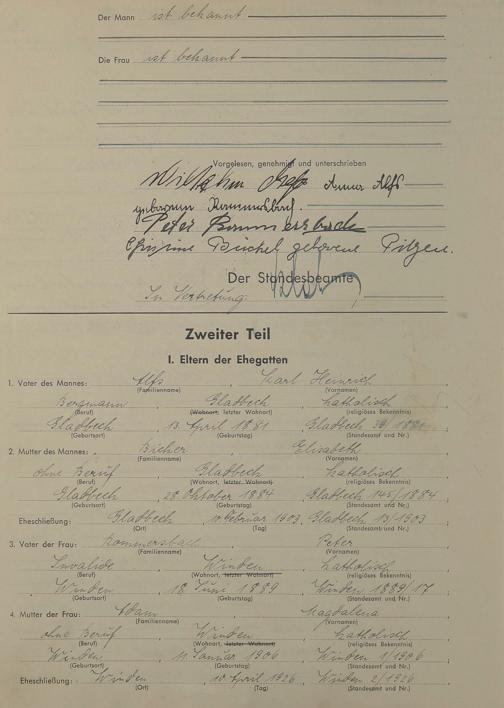 Der Mann ist bekannt
Die Frau ist bekannt
Vorgelesen, genehmigt und unterschrieben
Wilhelm Alfs Anna Alfs
geborene Rommersbach.
Peter Rommersbach
Christine Büchel geborene Pitzen.
Der Standesbeamte
In Vertretung:
Zweiter Teil
I. Eltern der Ehegatten
1. Vater des Mannes: Alfs, Karl Heinrich
(Familienname) (Vornamen)
Bergmann, Gladbeck, katholisch
(Beruf) (Wohnort, letzter Wohnort) (religiöses Bekenntnis)
Gladbeck, 13 April 1881, Gladbeck
(Geburtsort) (Geburtstag) (Standesamt und Nr.)
2. Mutter des Mannes: Elisabeth
(Familienname) (Vornamen)
ohne Beruf, Gladbeck, katholisch
(Beruf) (Wohnort, letzter Wohnort) (religiöses Bekenntnis)
Gladbeck, 28 Oktober 1884, Gladbeck 145/1884
(Geburtsort) (Geburtstag) (Standesamt und Nr.)
Eheschließung: Gladbeck, 10 Februar 1903, Gladbeck 13/1903
(Ort) (Tag) (Standesamt und Nr.)
3. Vater der Frau: Rommersbach, Peter
(Familienname) (Vornamen)
Invalide, Winden, katholisch
(Beruf) (Wohnort, letzter Wohnort) (religiöses Bekenntnis)
Winden, 18 Juni 1889, Winden 1889/17
(Geburtsort) (Geburtstag) (Standesamt und Nr.)
4. Mutter der Frau: Adam, Magdalena
(Familienname) (Vornamen)
ohne Beruf, Winden, katholisch
(Beruf) (Wohnort, letzter Wohnort) (religiöses Bekenntnis)
Winden, 11 Januar 1906, Winden 1/1906
(Geburtsort) (Geburtstag) (Standesamt und Nr.)
Eheschließung: Winden, 10 April 1926, Winden 2/1926
(Ort) (Tag) (Standesamt und Nr.)